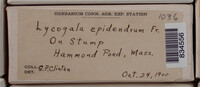 HERBARIUM CONN. AGR. EXP. STATION
Lycogala epidendrum Fr.
On Stump
Hammond Pond, Mass.
COLL.
DET. G.P. Clinton
Oct. 24, 1900
834556